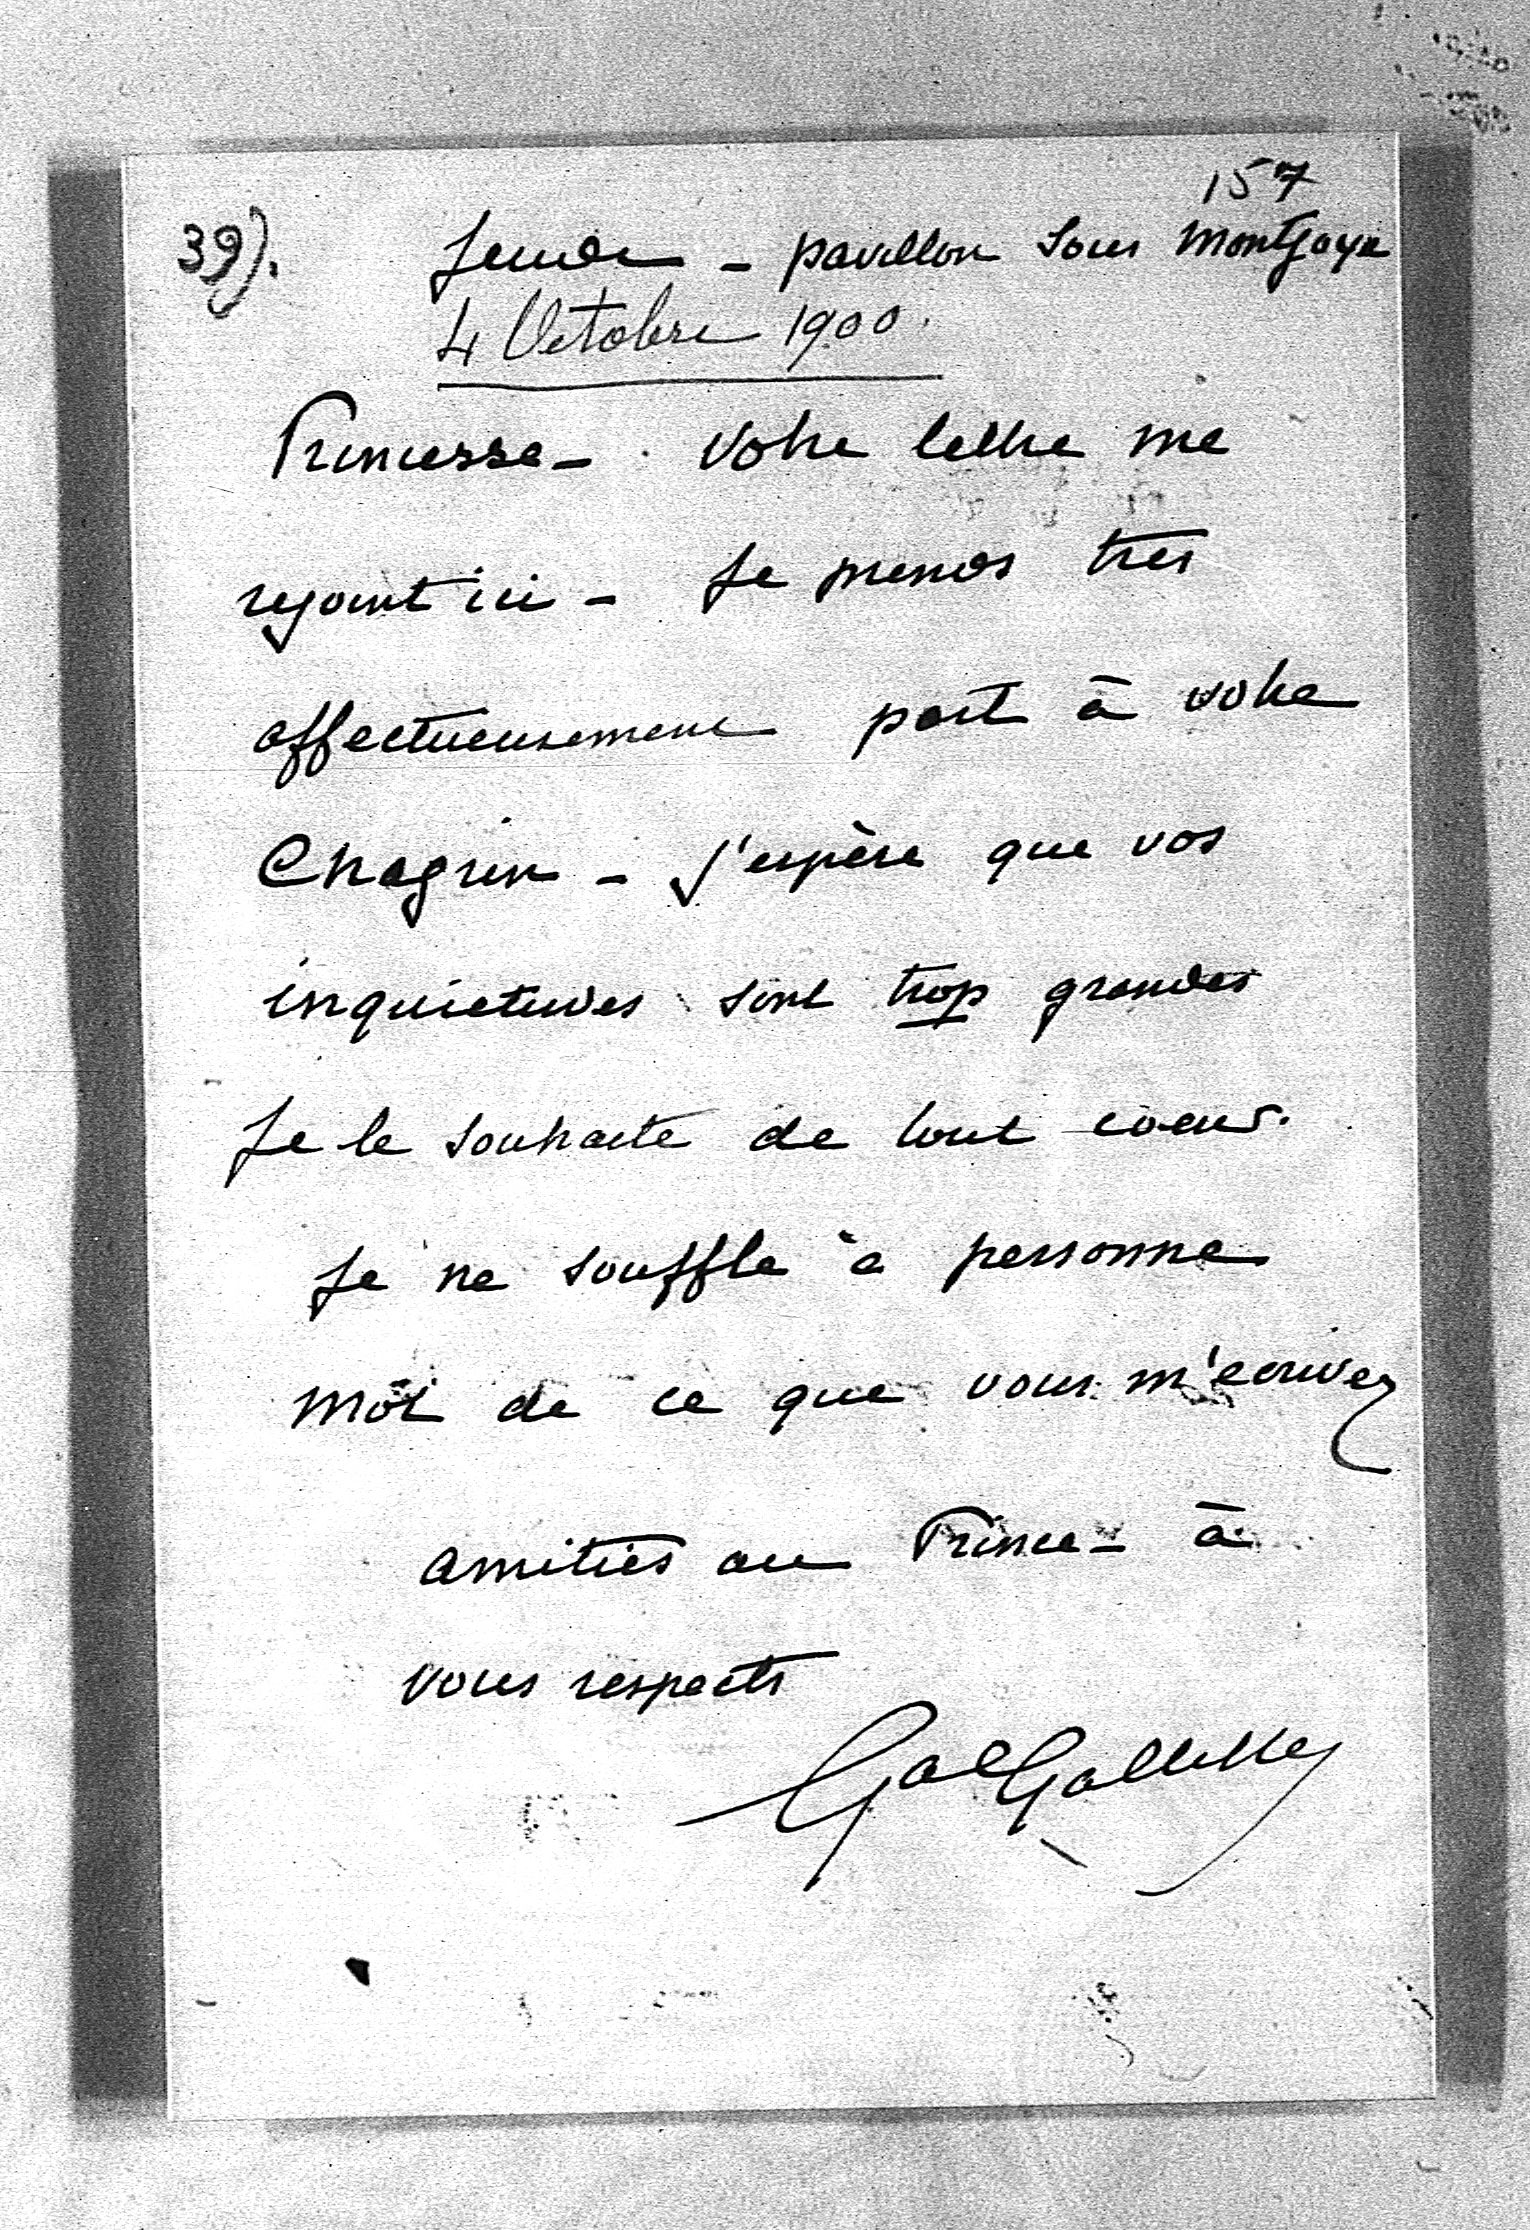 157
39).
Jeudi - pavillon sous Montjoye
4 Octobre 1900.
Princesse - votre lettre me
rejoint ici - Je prends très
affectueusement part à votre
Chagrin - J'espère que vos
inquietudes sont trop grandes
Je le souhaite de tout coeur.
Je ne souffle à personne
mot de ce que vous m'ecrivez
amitiés au Prince - à
vous respects
Gal Galliffet